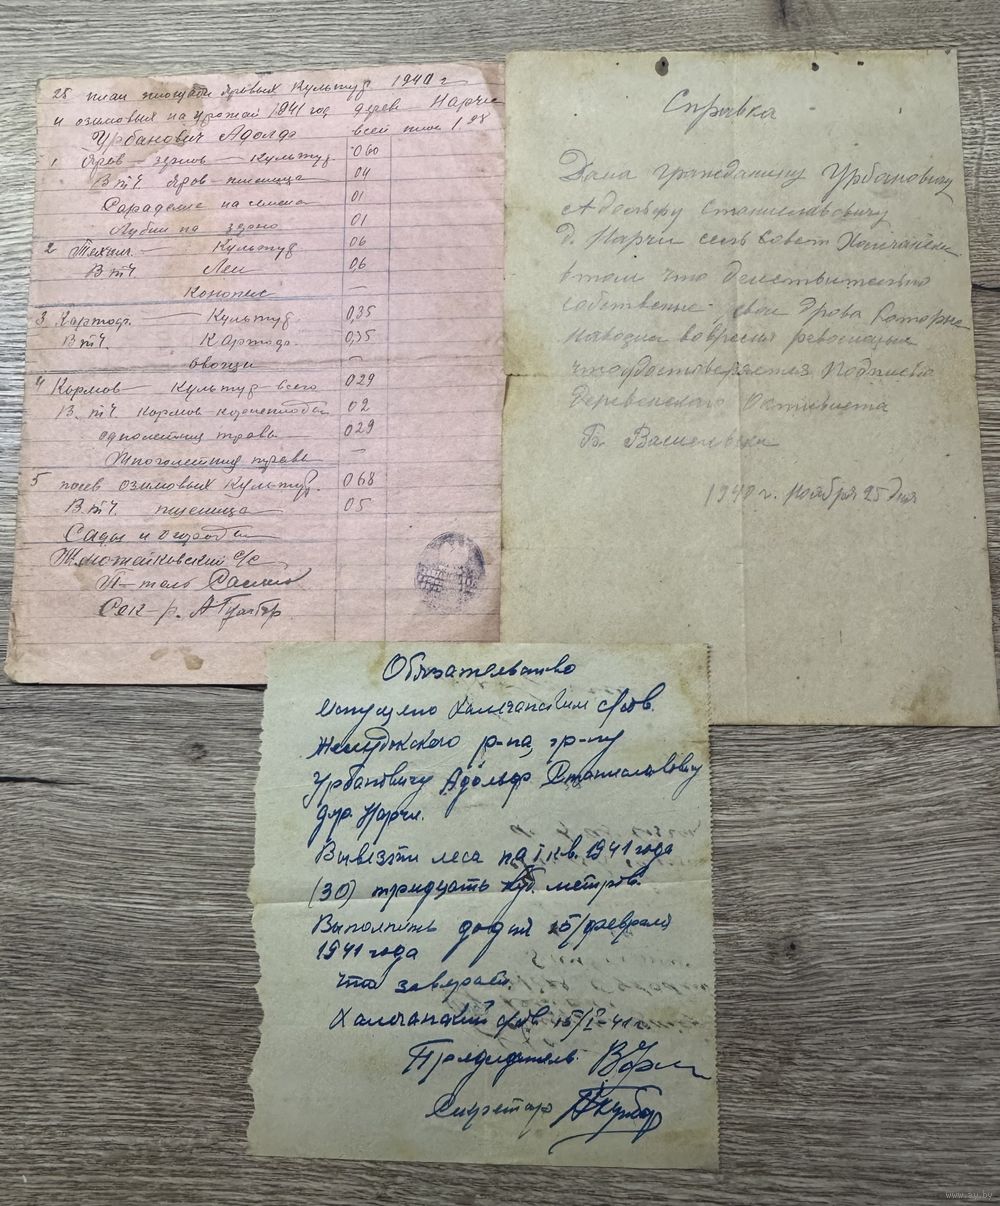 25 план площади яровых культур 1940 г
и озимовых на урожай 1941 год дерев Нарчи
Урбанович Адольф всей площ 1,98
1 Яров — зернов — культур. 060
В т.ч. яров — пшеница 04
Сараделие на семена 01
Лубин на зерно 01
2 Технич. — культур 06
В т.ч. Лен 06
Конопис —
3 Картоф. — культур 0,35
В т.ч. Картоф. 0,35
овощи —
4 Кормов — культур — всего 029
В т.ч. кормов корнеплоды 02
однолетние травы 029
Многолетние травы —
5 посев озимовых культур. 068
В т.ч. пшеница 05
Сады и огороды
с/с
П-тель
Сек-р.
Справка
Дана гражданину Урбановичу
Адольфу Станиславовичу
д. Нарчи сельсовет
в том что действительно
собственне свои дрова которые
навозил во время революции
что удостоверяется подписью
Деревенского Активиста
1940 г. Ноября 25 дня
Обязательство
с/сов.
Желудокского р-на, гр-ну
Урбановичу Адольф Станиславовичу
дер. Нарчи.
Вывезти леса на I кв. 1941 года
(30) тридцать куб. метров.
Выполнить 15/февраля
1941 года
что заверяет.
с/сов. 15/I-41 г.
Председатель
Секретарь
www.ay.by